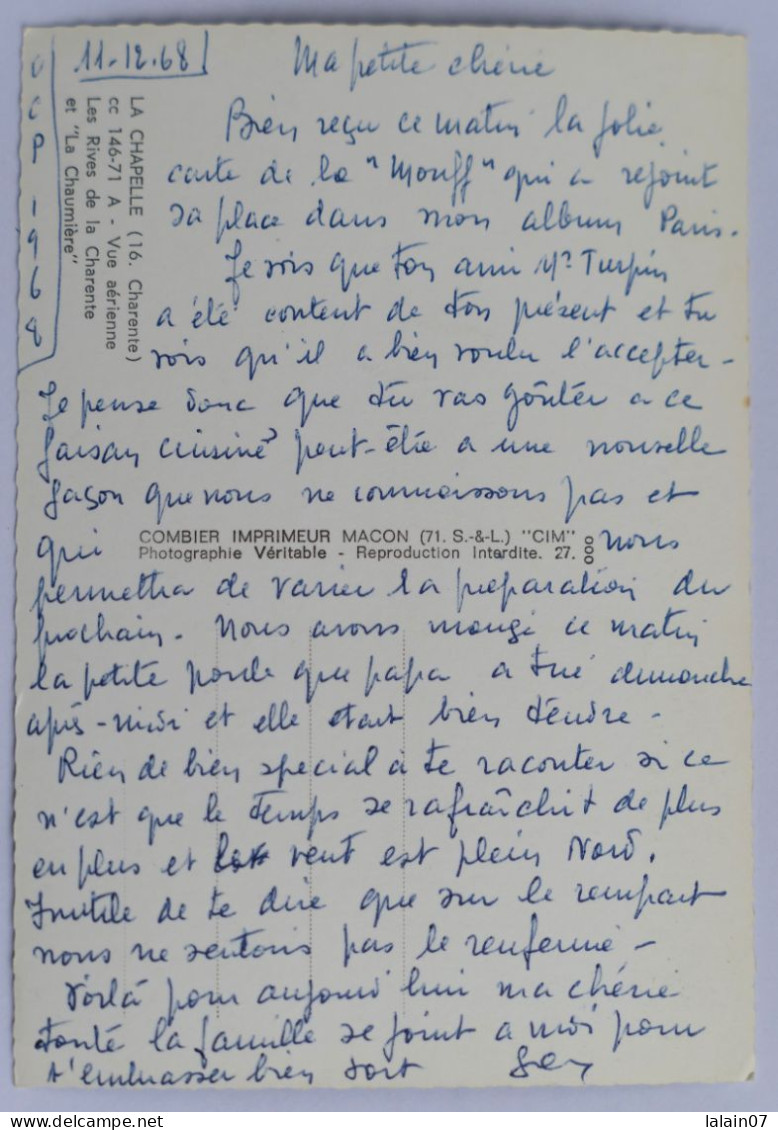 11-12-68
Ma petite chérie
Bien reçu ce matin la jolie
carte de la "Mouff" qui a rejoint
sa place dans mon album Paris.
Je vois que ton ami Mr Turpin
a été content de ton présent et tu
vois qu'il a bien voulu l'accepter-
Je pense donc que tu vas goûter a ce
faisan cuisiné peut-être a une nouvelle
façon que nous ne connaissons pas et
qui nous
permettra de varier la préparation du
prochain. Nous avons mangé ce matin
la petite poule que papa a tué dimanche
après-midi et elle était bien tendre-
Rien de bien spécial à te raconter si ce
n'est que le temps se rafraîchit de plus
en plus et vent est plein Nord.
Inutile de te dire que sur le rempart
nous ne sentons pas le renfermé-
Voilà pour aujourd'hui ma chérie
toute la famille se joint a moi pour
t'embrasser bien fort
LA CHAPELLE (16. Charente)
cc 146-71 A - Vue aérienne
Les Rives de la Charente
et "La Chaumière"
COMBIER IMPRIMEUR MACON (71. S.-&-L.) "CIM"
Photographie Véritable - Reproduction Interdite. 27.
000
1968
www.delcampe.net
lalain07